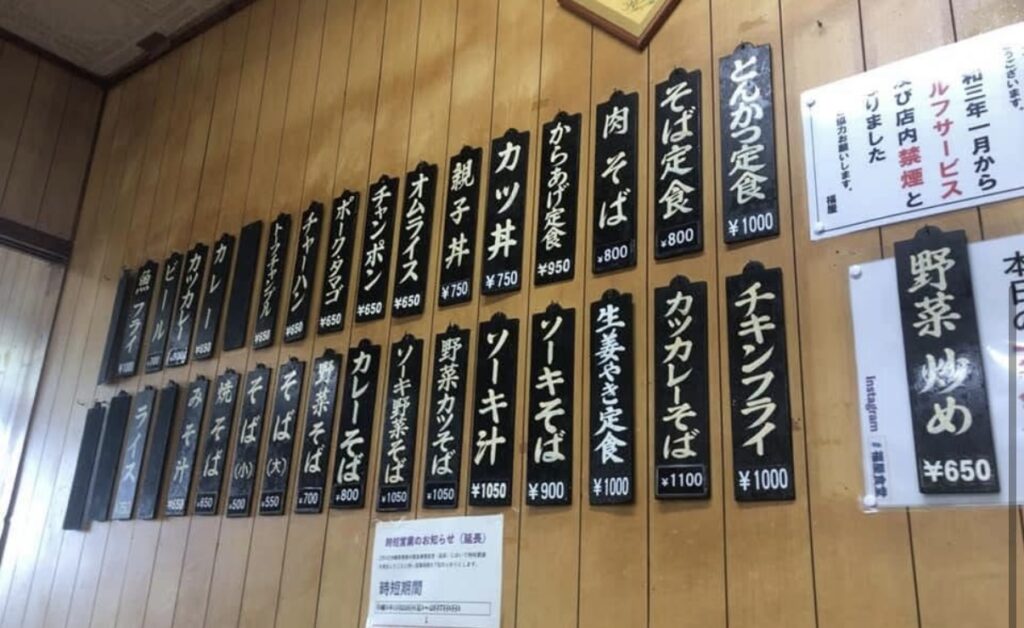 とんかつ定食
¥1000
そば定食
¥800
肉そば
¥800
からあげ定食
¥950
カツ丼
¥750
親子丼
¥750
オムライス
¥650
チャンポン
¥650
ポークタマゴ
¥650
チャーハン
¥650
¥650
カレー
¥650
カツカレー
ビール
魚フライ
チキンフライ
¥1000
カツカレーそば
¥1100
生姜やき定食
¥1000
ソーキそば
¥900
ソーキ汁
¥1050
野菜カツそば
¥1050
ソーキ野菜そば
¥1050
カレーそば
¥800
野菜そば
¥700
そば(大)
¥550
そば(小)
¥500
焼そば
¥650
みそ汁
¥650
ライス
うございます。
和三年一月から
ルフサービス
び店内禁煙と
りました
ご協力お願いします。
福屋
野菜炒め
¥650
本日の
Instagram
時短営業のお知らせ（延長）
時短期間